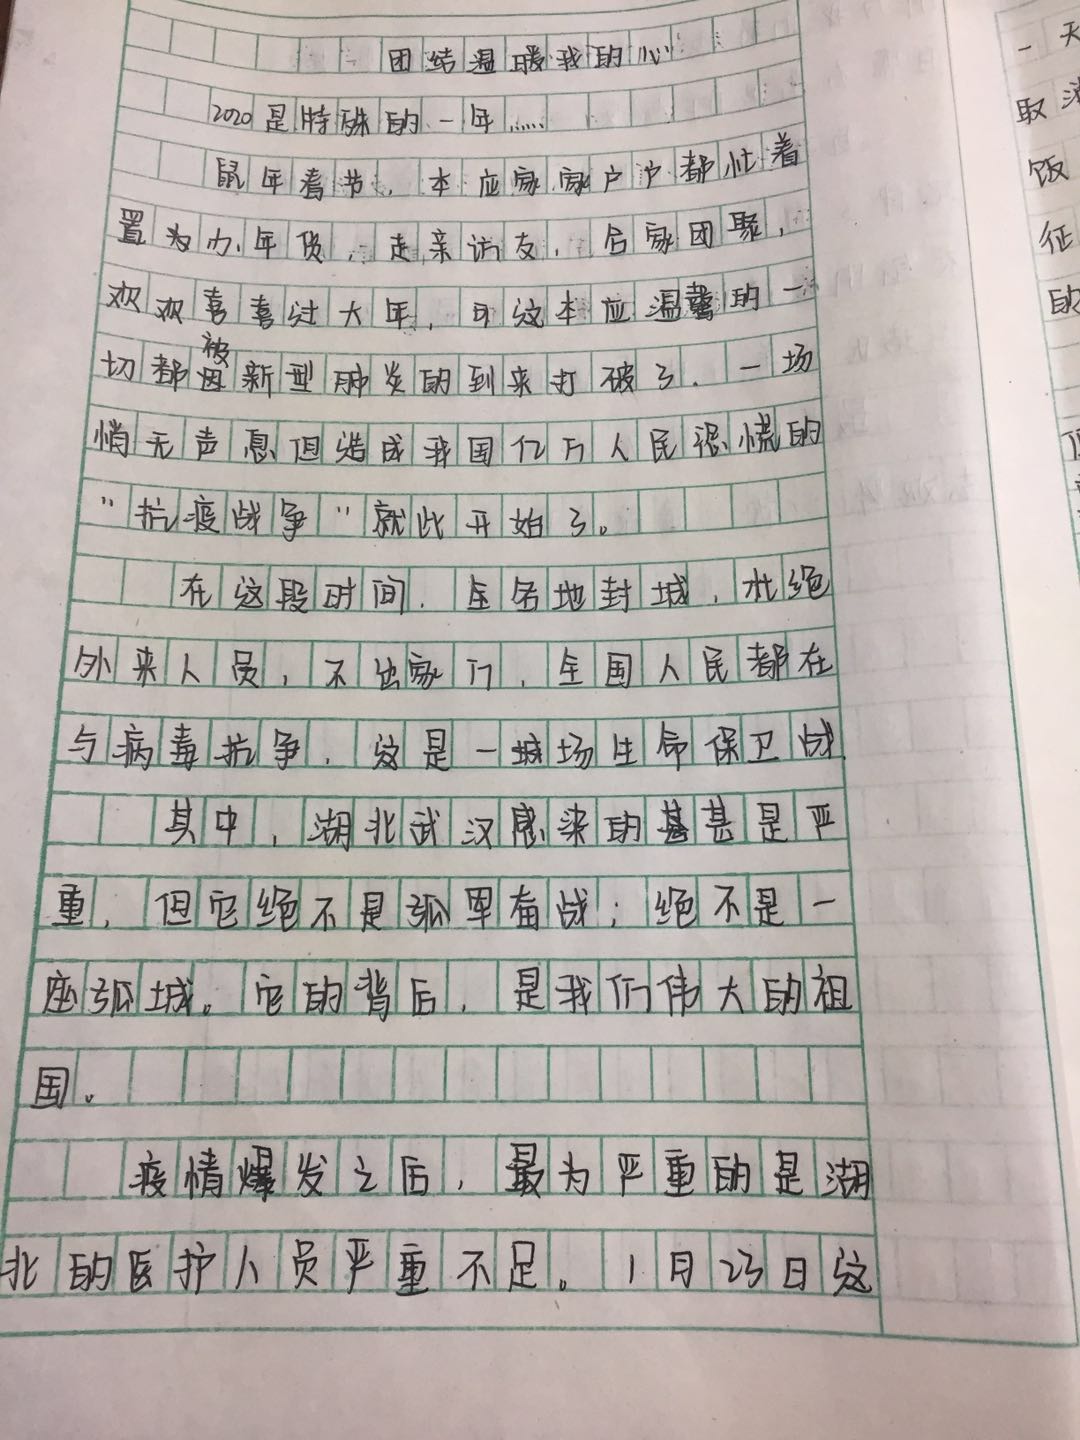 团结温暖我的心
2020是特殊的一年……
鼠年春节，本应家家户户都忙着
置为办年货，走亲访友，合家团聚，
欢欢喜喜过大年，可这本应温馨的一
切都被新型肺炎的到来打破了，一场
悄无声息但造成我国亿万人民恐慌的
“抗疫战争”就此开始了。
在这段时间，全各地封城，杜绝
外来人员，不出家门，全国人民都在
与病毒抗争，这是一场生命保卫战
其中，湖北武汉感染的甚是严
重，但它绝不是孤军奋战；绝不是一
座孤城。它的背后，是我们伟大的祖
国。
疫情爆发之后，最为严重的是湖
北的医护人员严重不足。1月23日这
一天
取消
饭
征
的